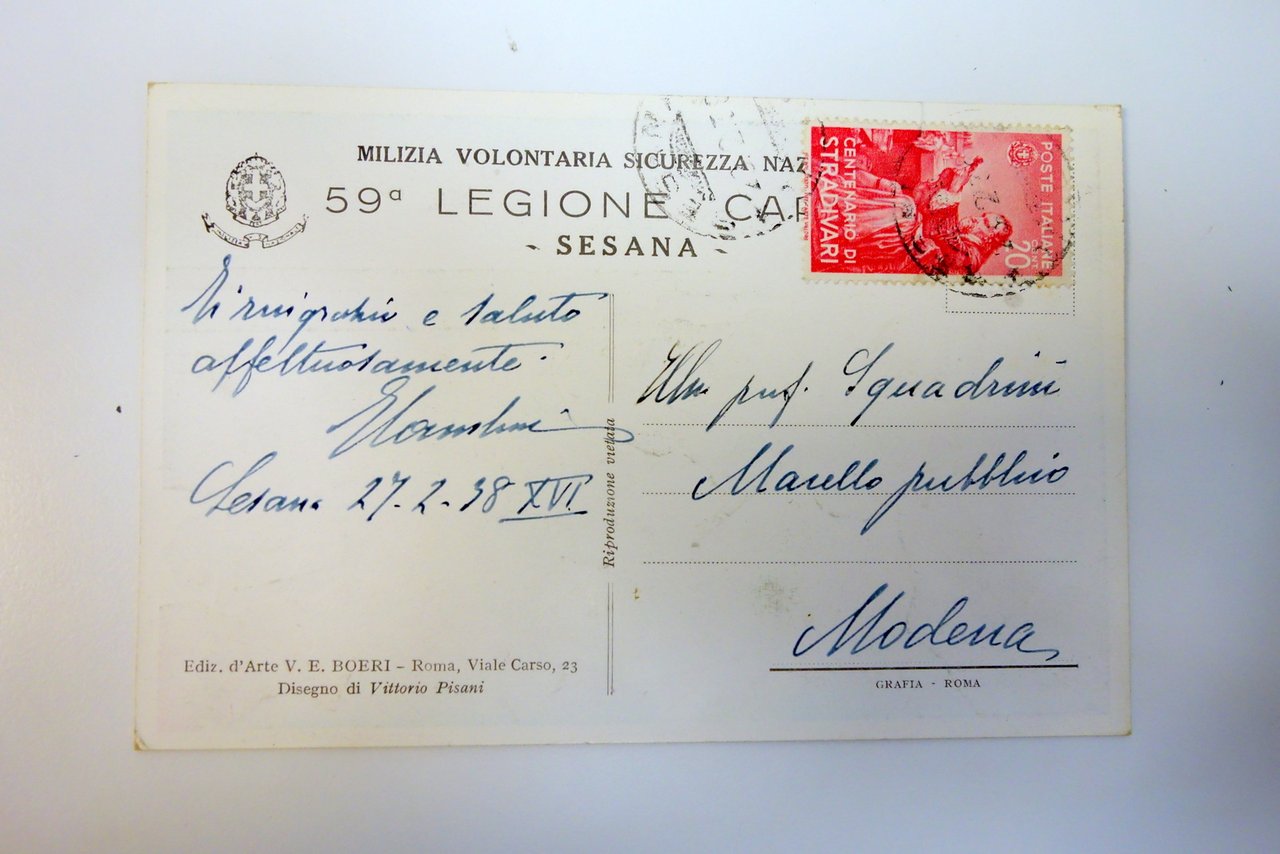 MILIZIA VOLONTARIA SICUREZZA NAZ
59ª LEGIONE CAR
- SESANA -
POSTE ITALIANE
CENT. 20
CENTENARIO DI
STRADIVARI
e saluto
affettuosamente.
Sesana 27-2-38 XVI
Riproduzione vietata
Ill. prof. Squadrini
Macello pubblico
Modena
Ediz. d'Arte V. E. BOERI - Roma, Viale Carso, 23
Disegno di Vittorio Pisani
GRAFIA - ROMA